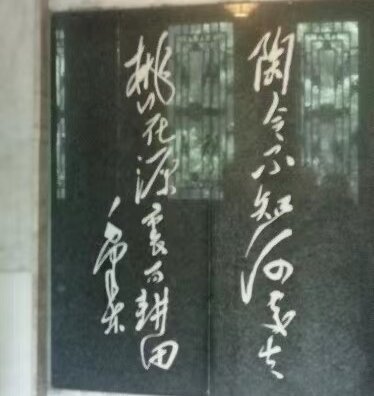 陶令不知何处去
桃花源裏可耕田
毛泽东